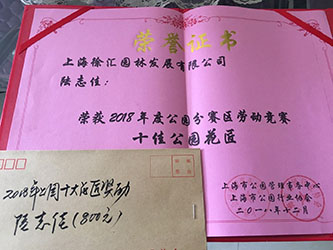 荣誉证书
上海徐汇园林发展有限公司
陆志佳：
荣获2018年度公园分赛区劳动竞赛
十佳公园花匠
上海市公园管理事务中心
上海市公园行业协会
二〇一八年十二月
2018年公园十大花匠奖励
陆志佳（800元）